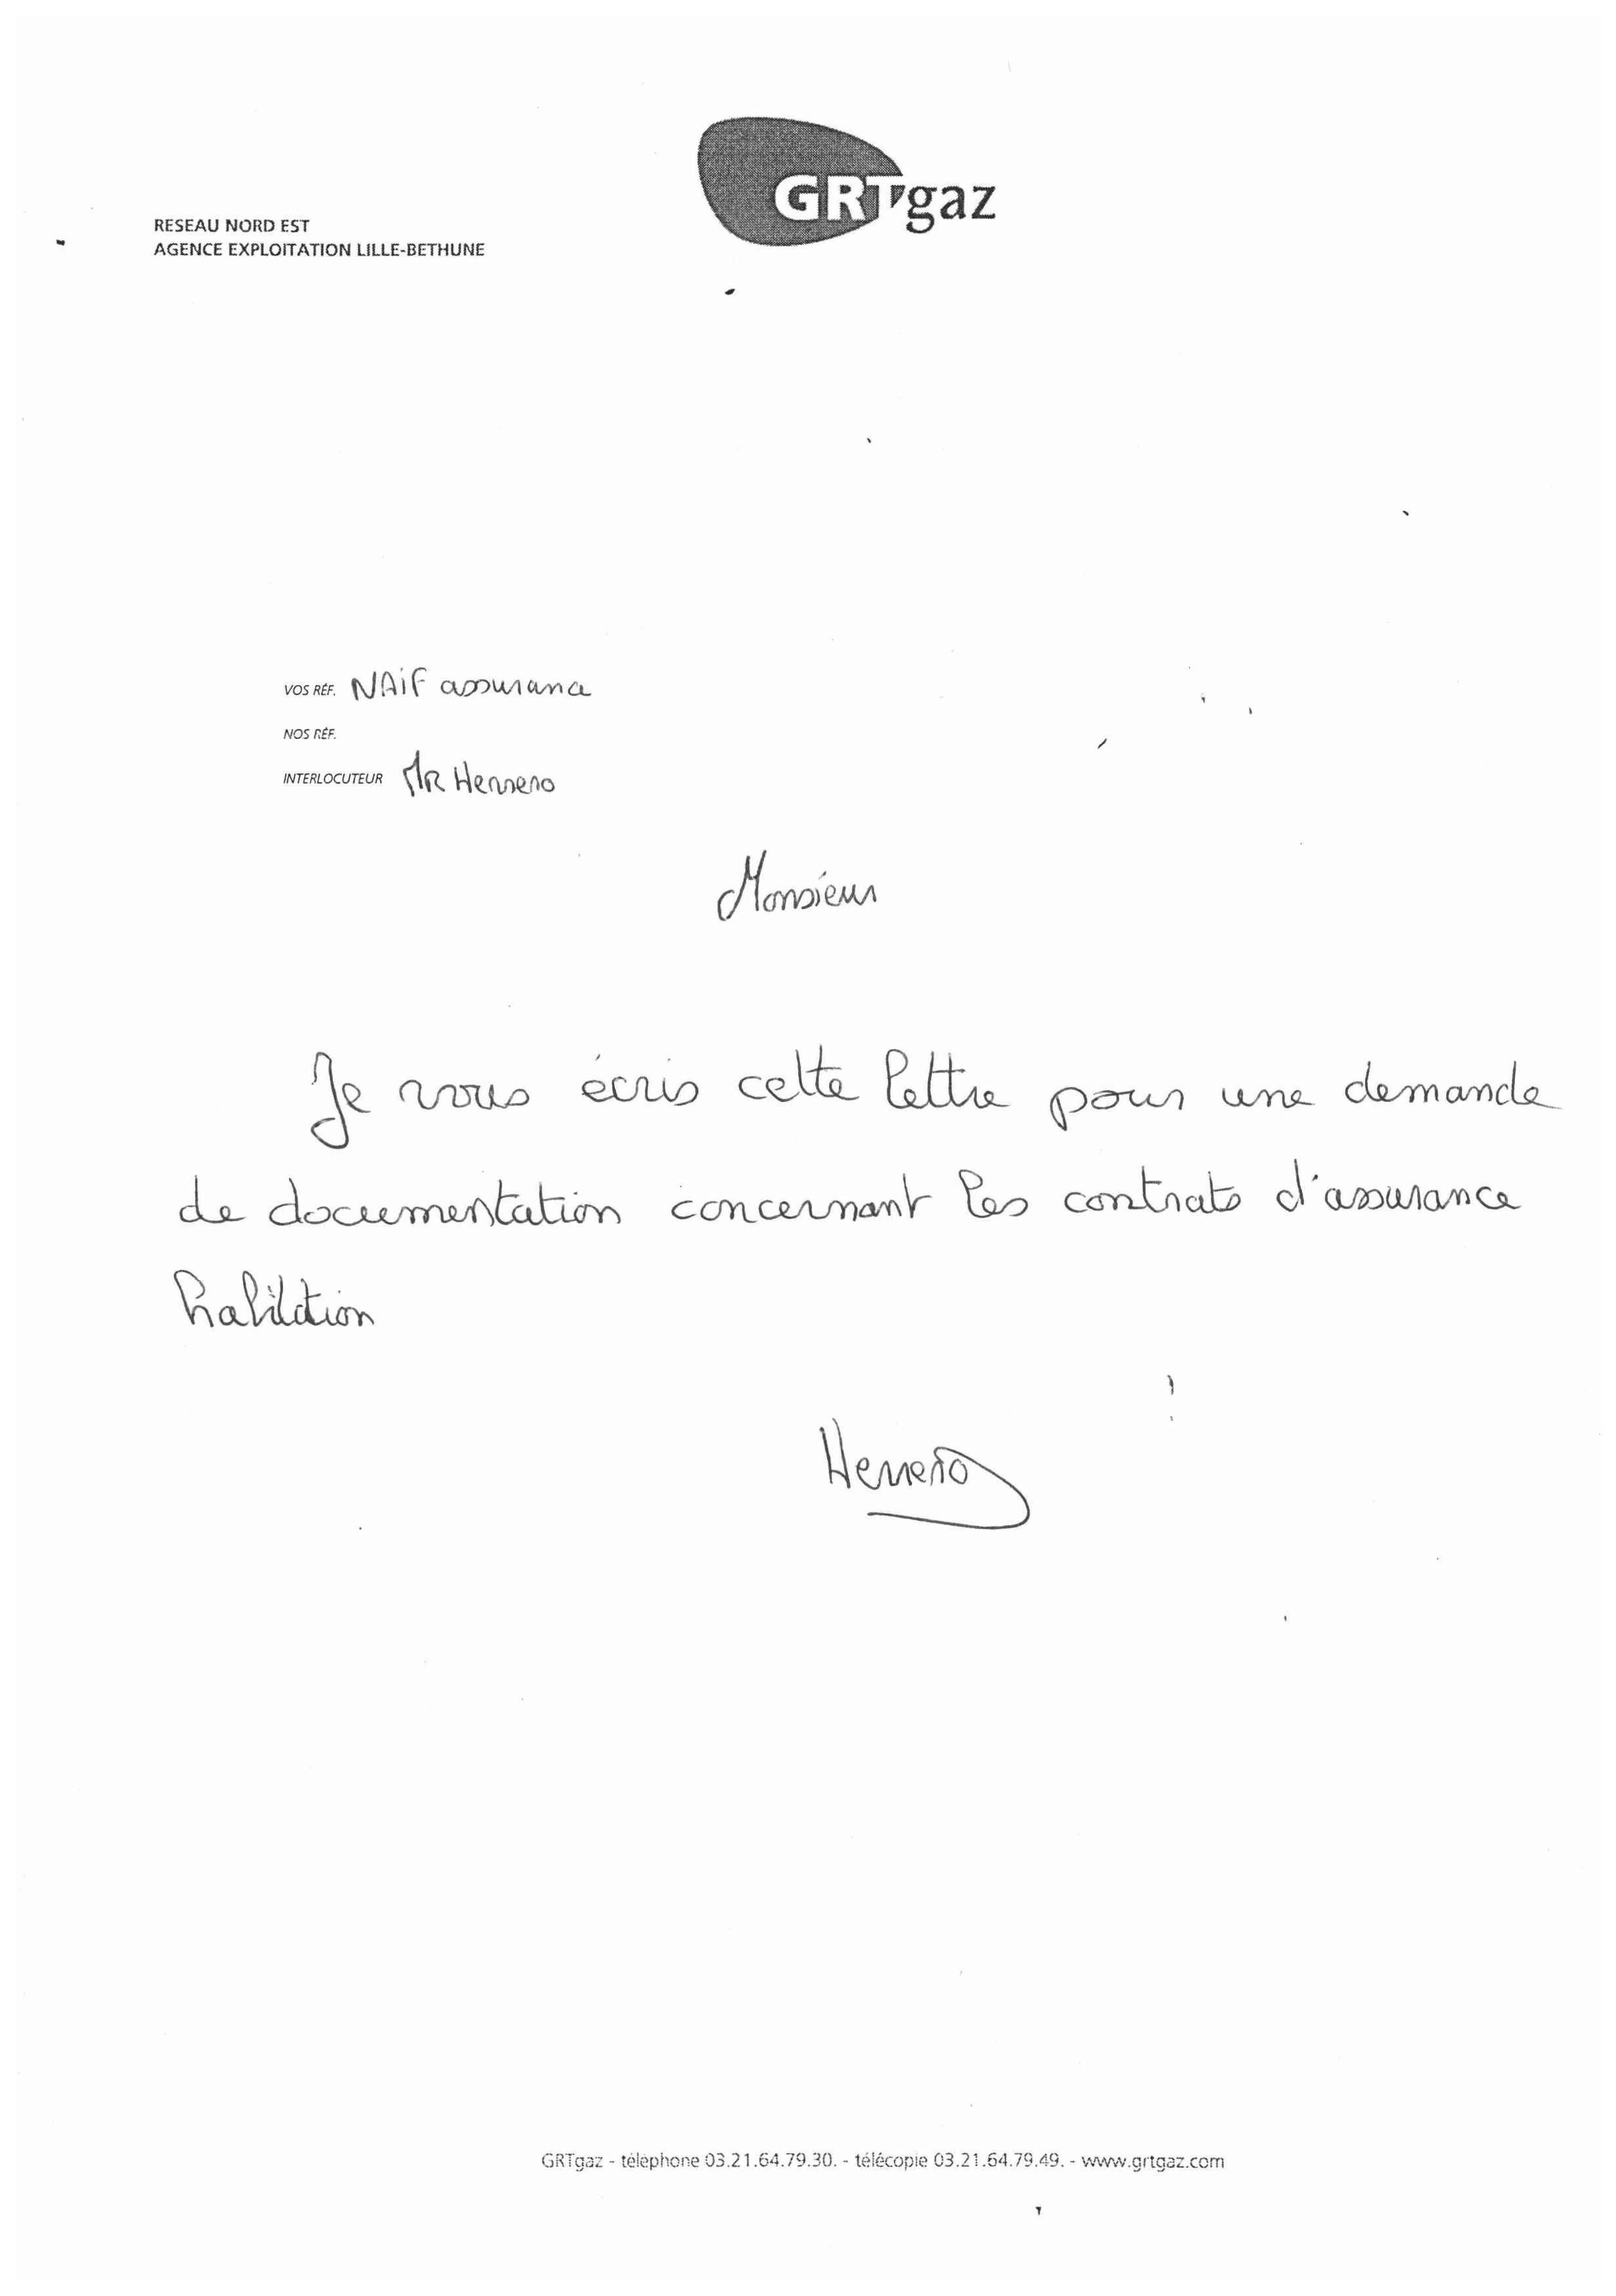 GRTgaz
RESEAU NORD EST
AGENCE EXPLOITATION LILLE-BETHUNE
VOS RÉF. NAIF assurance
NOS RÉF.
INTERLOCUTEUR MR Herrero
Monsieur
Je vous écris cette lettre pour une demande
de documentation concernant les contrats d'assurance
habitation
Herrero
GRTgaz - téléphone 03.21.64.79.30. - télécopie 03.21.64.79.49. - www.grtgaz.com